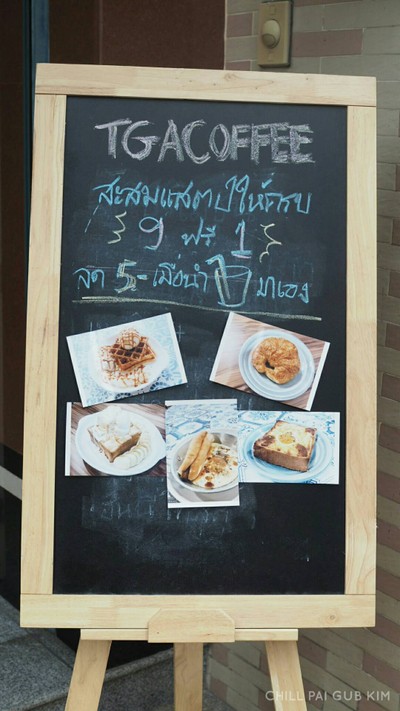 TGACOFFEE
สะสมแสตมป์ให้ครบ
9 ฟรี 1
ลด 5.- เมื่อนำ มาเอง
CHILL PAI GUB KIM